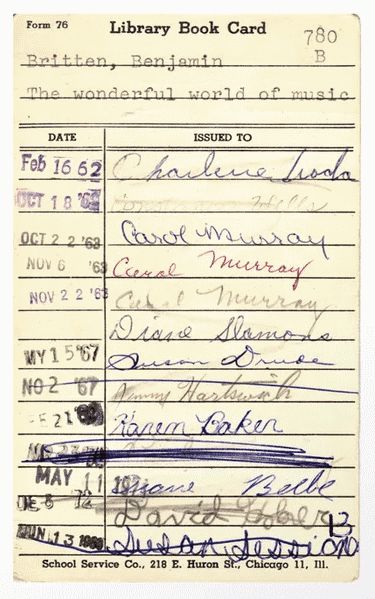 Form 76 Library Book Card
780
B
Britten, Benjamin
The wonderful world of music
DATE ISSUED TO
Feb 16 62 Charlene
OCT 18 Wells
OCT 22 '63 Carol Murray
NOV 6 '63 Carol Murray
NOV 22 '63 Carol Murray
Diane Slamons
MY 15 '67 Susan Drude
NO 2 '67
FE 21 Karen Baker
MAY 11 Diane
DE 8 72 David
JUN 13 Susan Sessions
School Service Co., 218 E. Huron St., Chicago 11, Ill.